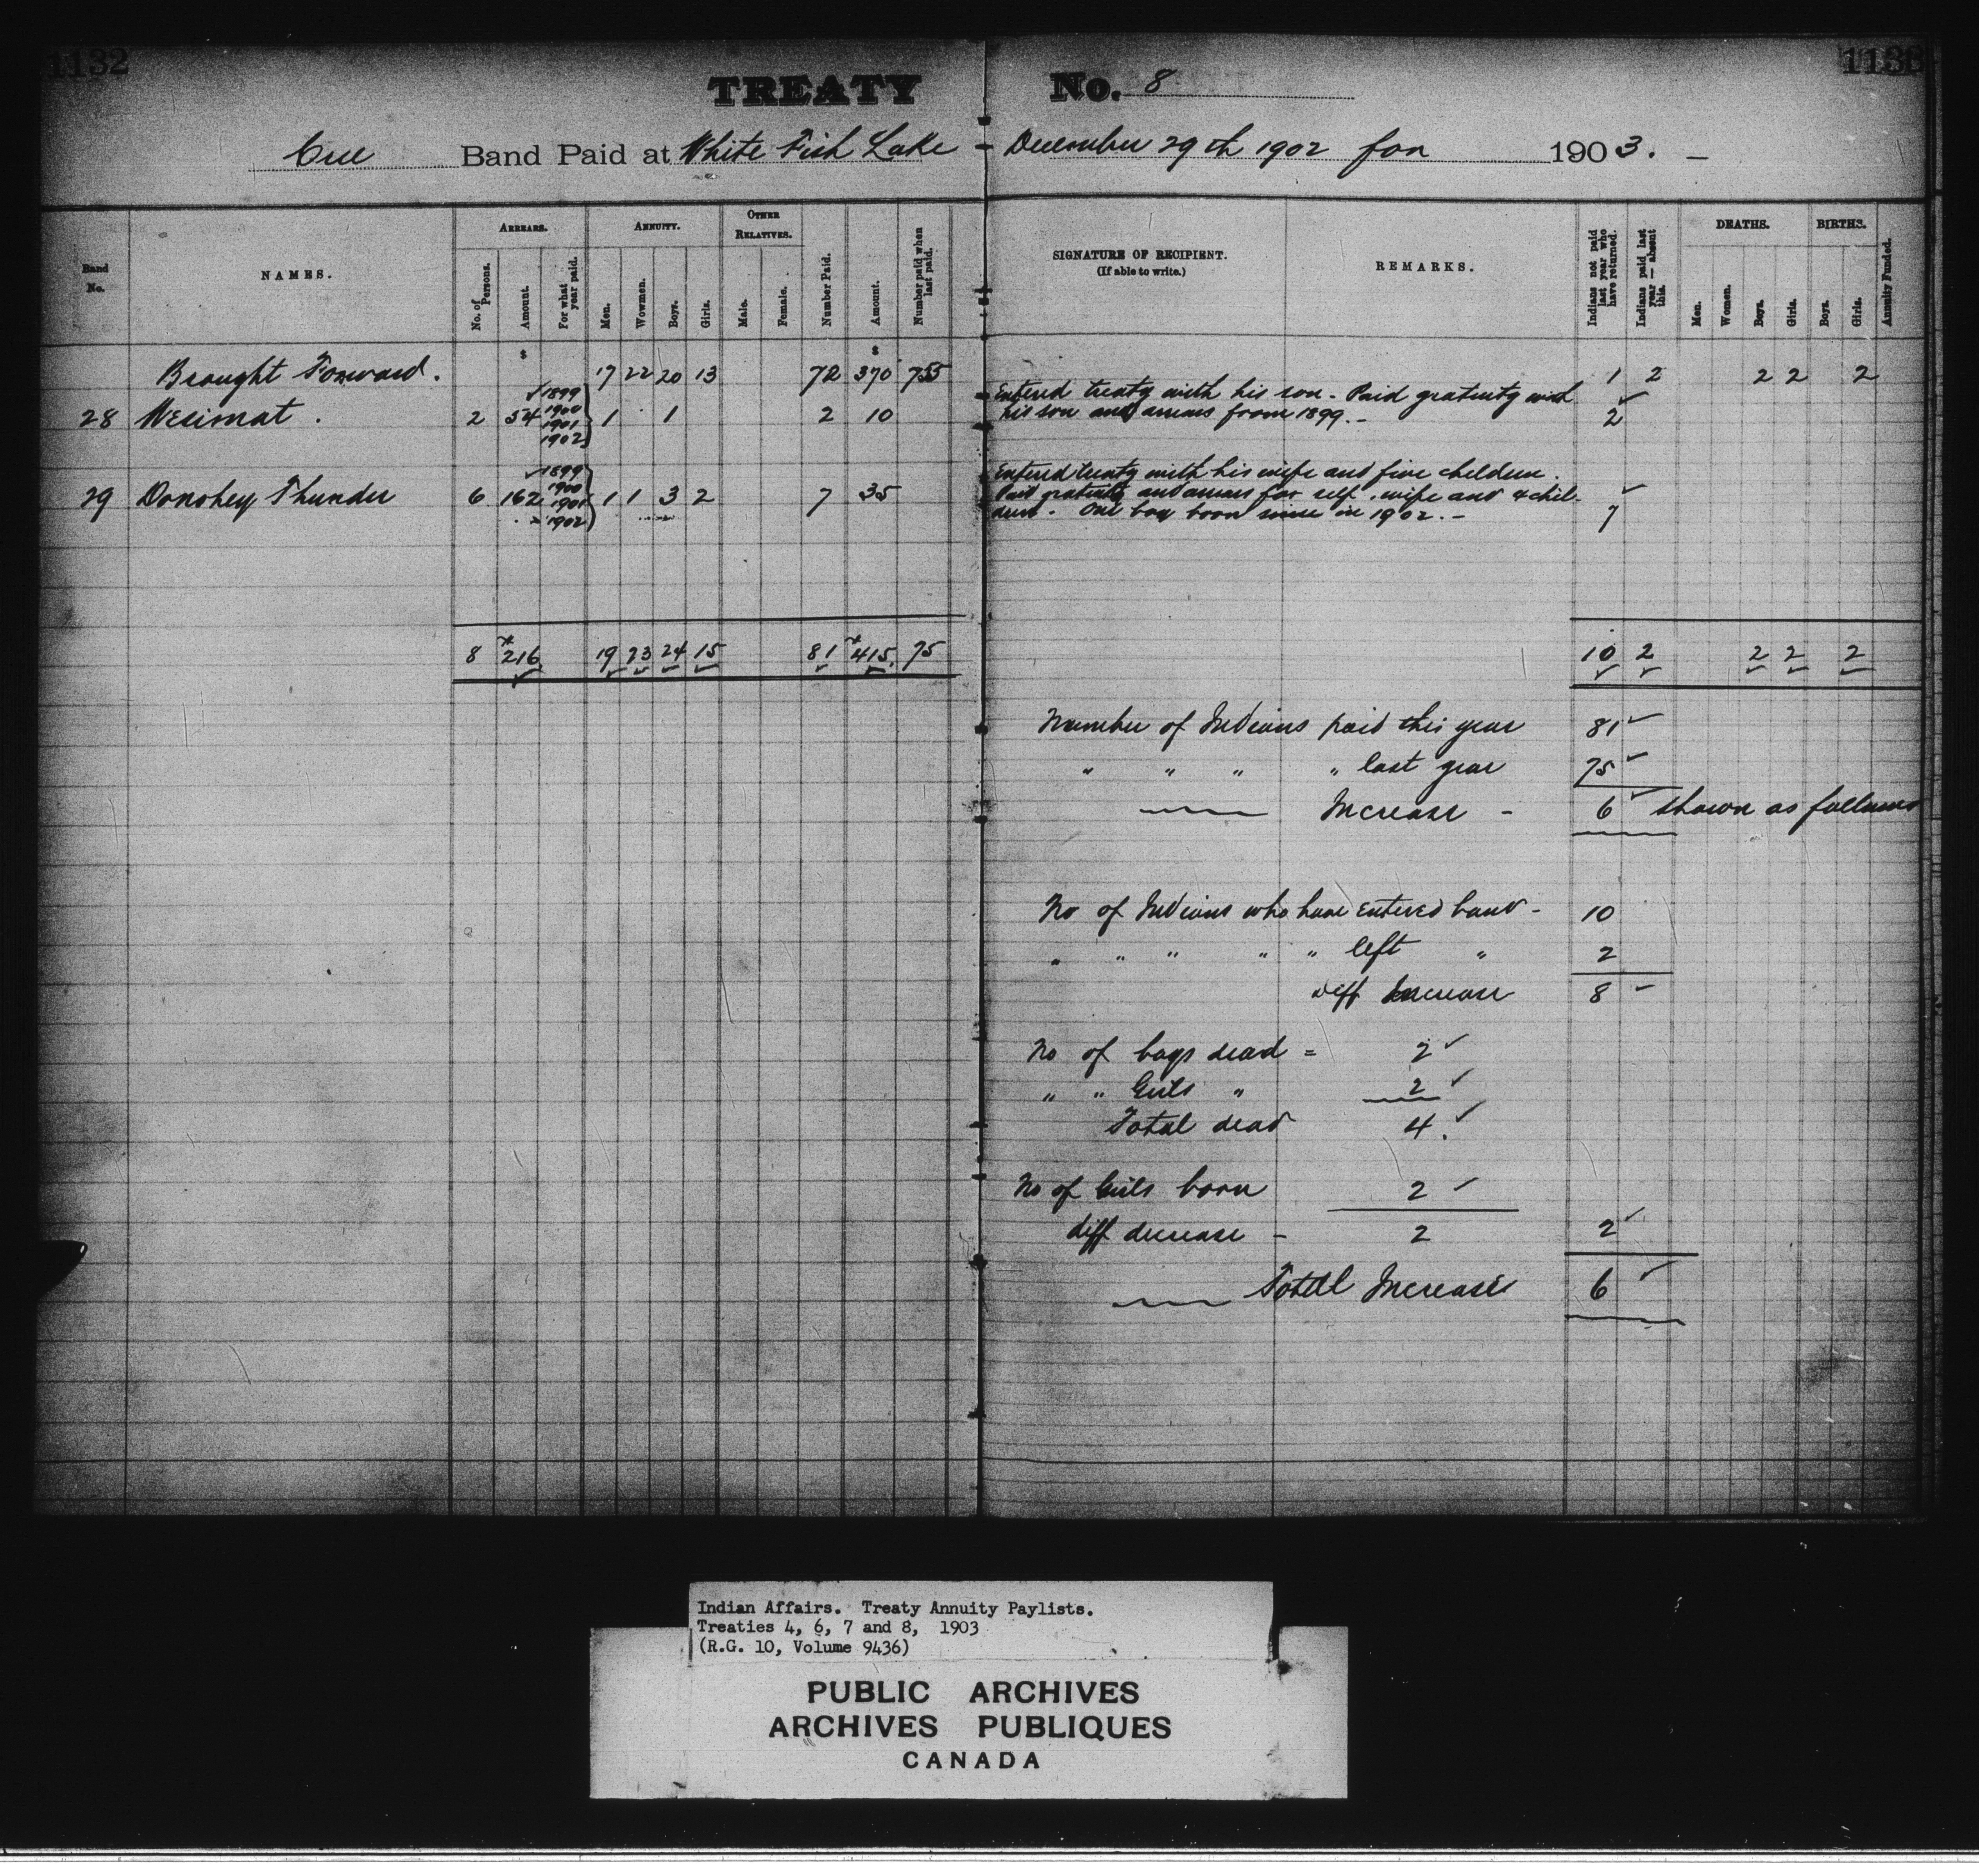 1132
1133
TREATY No. 8
Cree Band Paid at White Fish Lake - December 29th 1902 for 1903. -
Band No.
NAMES.
ARREARS.
No. of Persons.
Amount.
For what year paid.
ANNUITY.
Men.
Wowmen.
Boys.
Girls.
OTHER RELATIVES.
Male.
Female.
Number Paid.
Amount.
Number paid when last paid.
SIGNATURE OF RECIPIENT.
(If able to write.)
REMARKS.
Indians not paid last year who have returned.
Indians paid last year — absent this.
DEATHS.
Men.
Women.
Boys.
Girls.
BIRTHS.
Boys.
Girls.
Annuity Funded.
$ $
Brought Forward. 17 22 20 13 72 370 75 1 2 2 2 2
28 Wesimat. 2 54 1899 1900 1901 1902 1 1 2 10
Entered treaty with his son. Paid gratuity with
his son and arrears from 1899. - 2
29 Donohey Thunder 6 162 1899 1900 1901 1902 1 1 3 2 7 35
Entered treaty with his wife and five children.
Paid gratuity and arrears for self, wife and 4 chil-
dren. One boy born since in 1902. - 7
8 $216 19 23 24 15 81 $415. 75 10 2 2 2 2
Number of Indians paid this year 81
" " " " last year 75
Increase - 6 shown as follows
No of Indians who have entered band - 10
" " " " " left " 2
diff Increase 8
No of boys dead = 2
" " Girls " 2
Total dead 4.
No of Girls born 2
diff decrease - 2 2
Total Increase 6
Indian Affairs. Treaty Annuity Paylists.
Treaties 4, 6, 7 and 8, 1903
(R.G. 10, Volume 9436)
PUBLIC ARCHIVES
ARCHIVES PUBLIQUES
CANADA